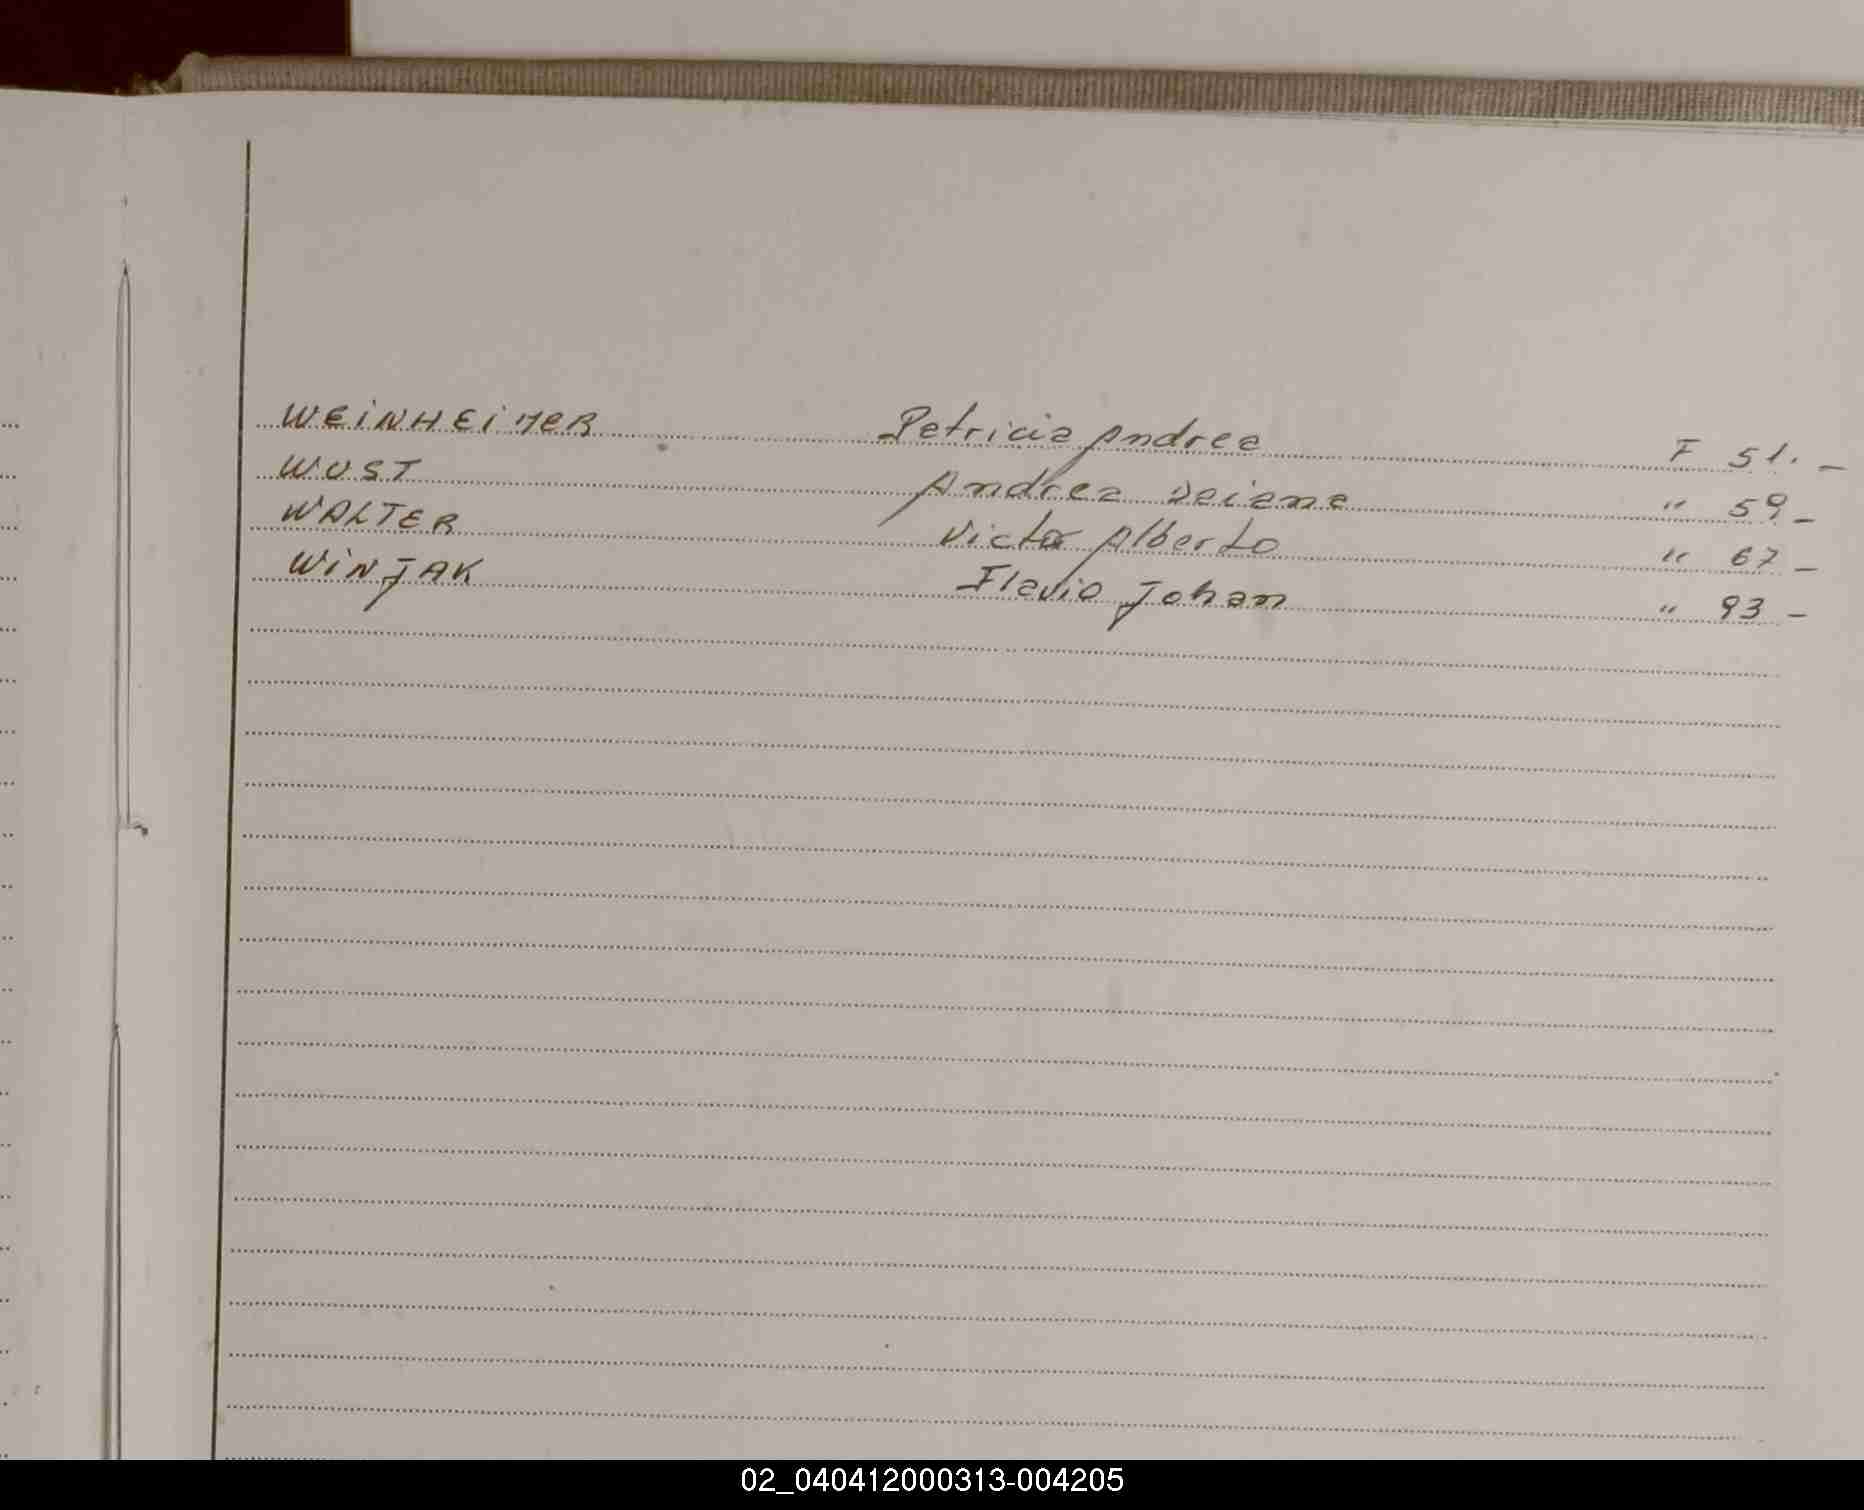 WEINHEIMER Patricia Andrea F 51. -
WUST Andrea Daiana " 59 -
WALTER Victor Alberto " 67 -
WINJAK Flavio Johan " 93 -
02_040412000313-004205